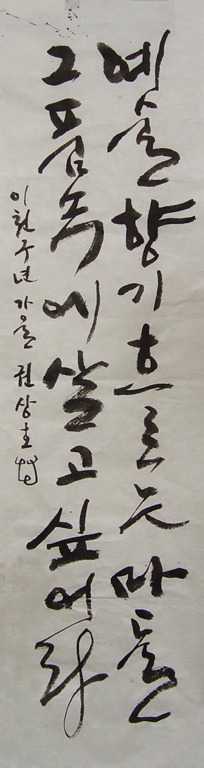 예술향기흐르는마을
그품속에살고싶어라
이천구년가을 권상호